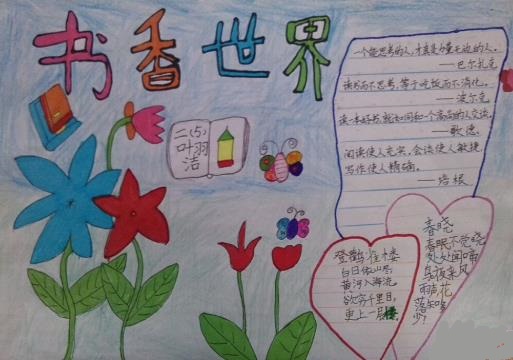 书香世界
一个能思考的人,才真是力量无边的人。
——巴尔扎克
读书而不思考,等于吃饭而不消化。
——波尔克
读一本好书,就如同和一个高尚的人交谈。
——歌德
阅读使人充实,会谈使人敏捷
写作使人精确。
——培根
二(5)
叶羽洁
登鹳雀楼
白日依山尽,
黄河入海流。
欲穷千里目,
更上一层楼
春晓
春眠不觉晓
处处闻啼
鸟夜来风
雨声花
落知多
少?